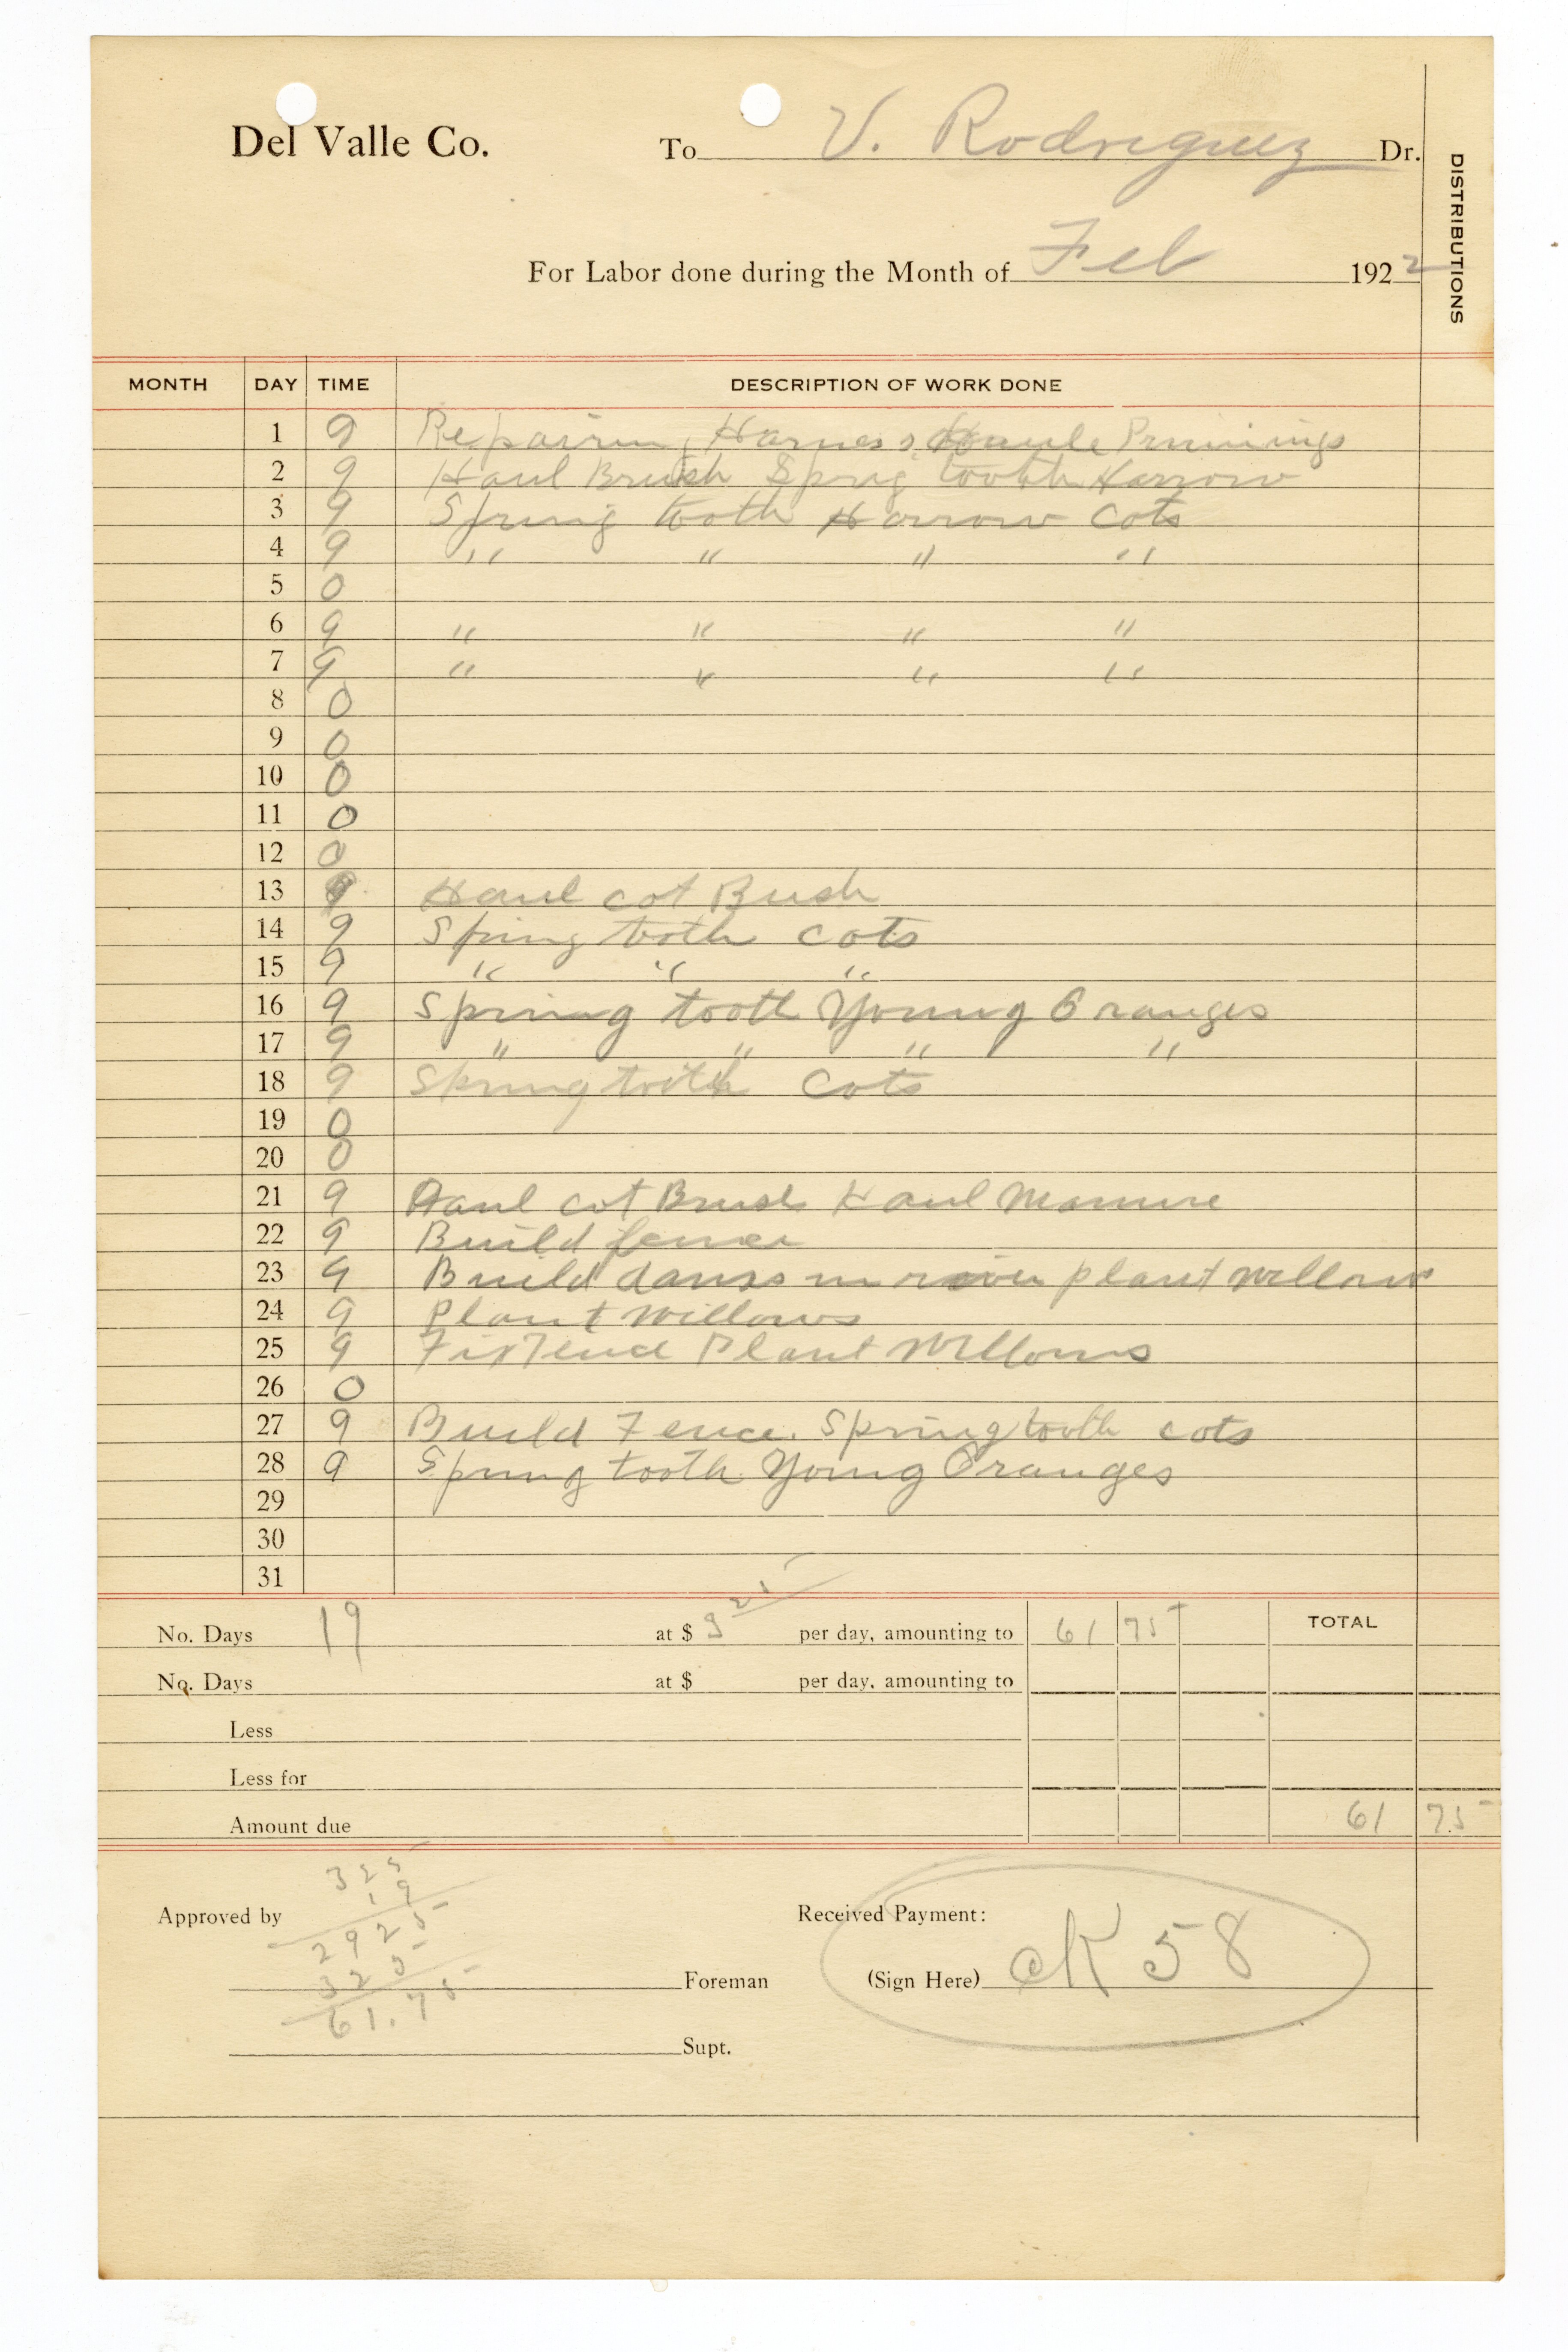 Del Valle Co. To V. Rodriguez Dr.
DISTRIBUTIONS
For Labor done during the Month of Feb 1922
MONTH DAY TIME DESCRIPTION OF WORK DONE
1 9 Harness Prunings
2 9 Haul Brush Sprig tooth Harrow
3 9 Spring tooth Harrow Cots
4 9 " " " "
5 0
6 9 " " " "
7 9 " " " "
8 0
9 0
10 0
11 0
12 0
13 9 Haul cot Bush
14 9 Spring tooth cots
15 9 " " "
16 9 Spring tooth Young Oranges
17 9 " " " "
18 9 Spring tooth Cots
19 0
20 0
21 9 Haul cot Brush Haul Manure
22 9 Build
23 9 Build in river plant willows
24 9 Plant Willows
25 9 Fix Fence Plant Willows
26 0
27 9 Build Fence. Spring tooth cots
28 9 Spring tooth Young Oranges
29
30
31
No. Days 19 at $ 3 25 per day, amounting to 61 75 TOTAL
No. Days at $ per day, amounting to
Less
Less for
Amount due 61 75
325
19
2925
325
61.75
Approved by Received Payment:
Foreman (Sign Here) cK 58
Supt.